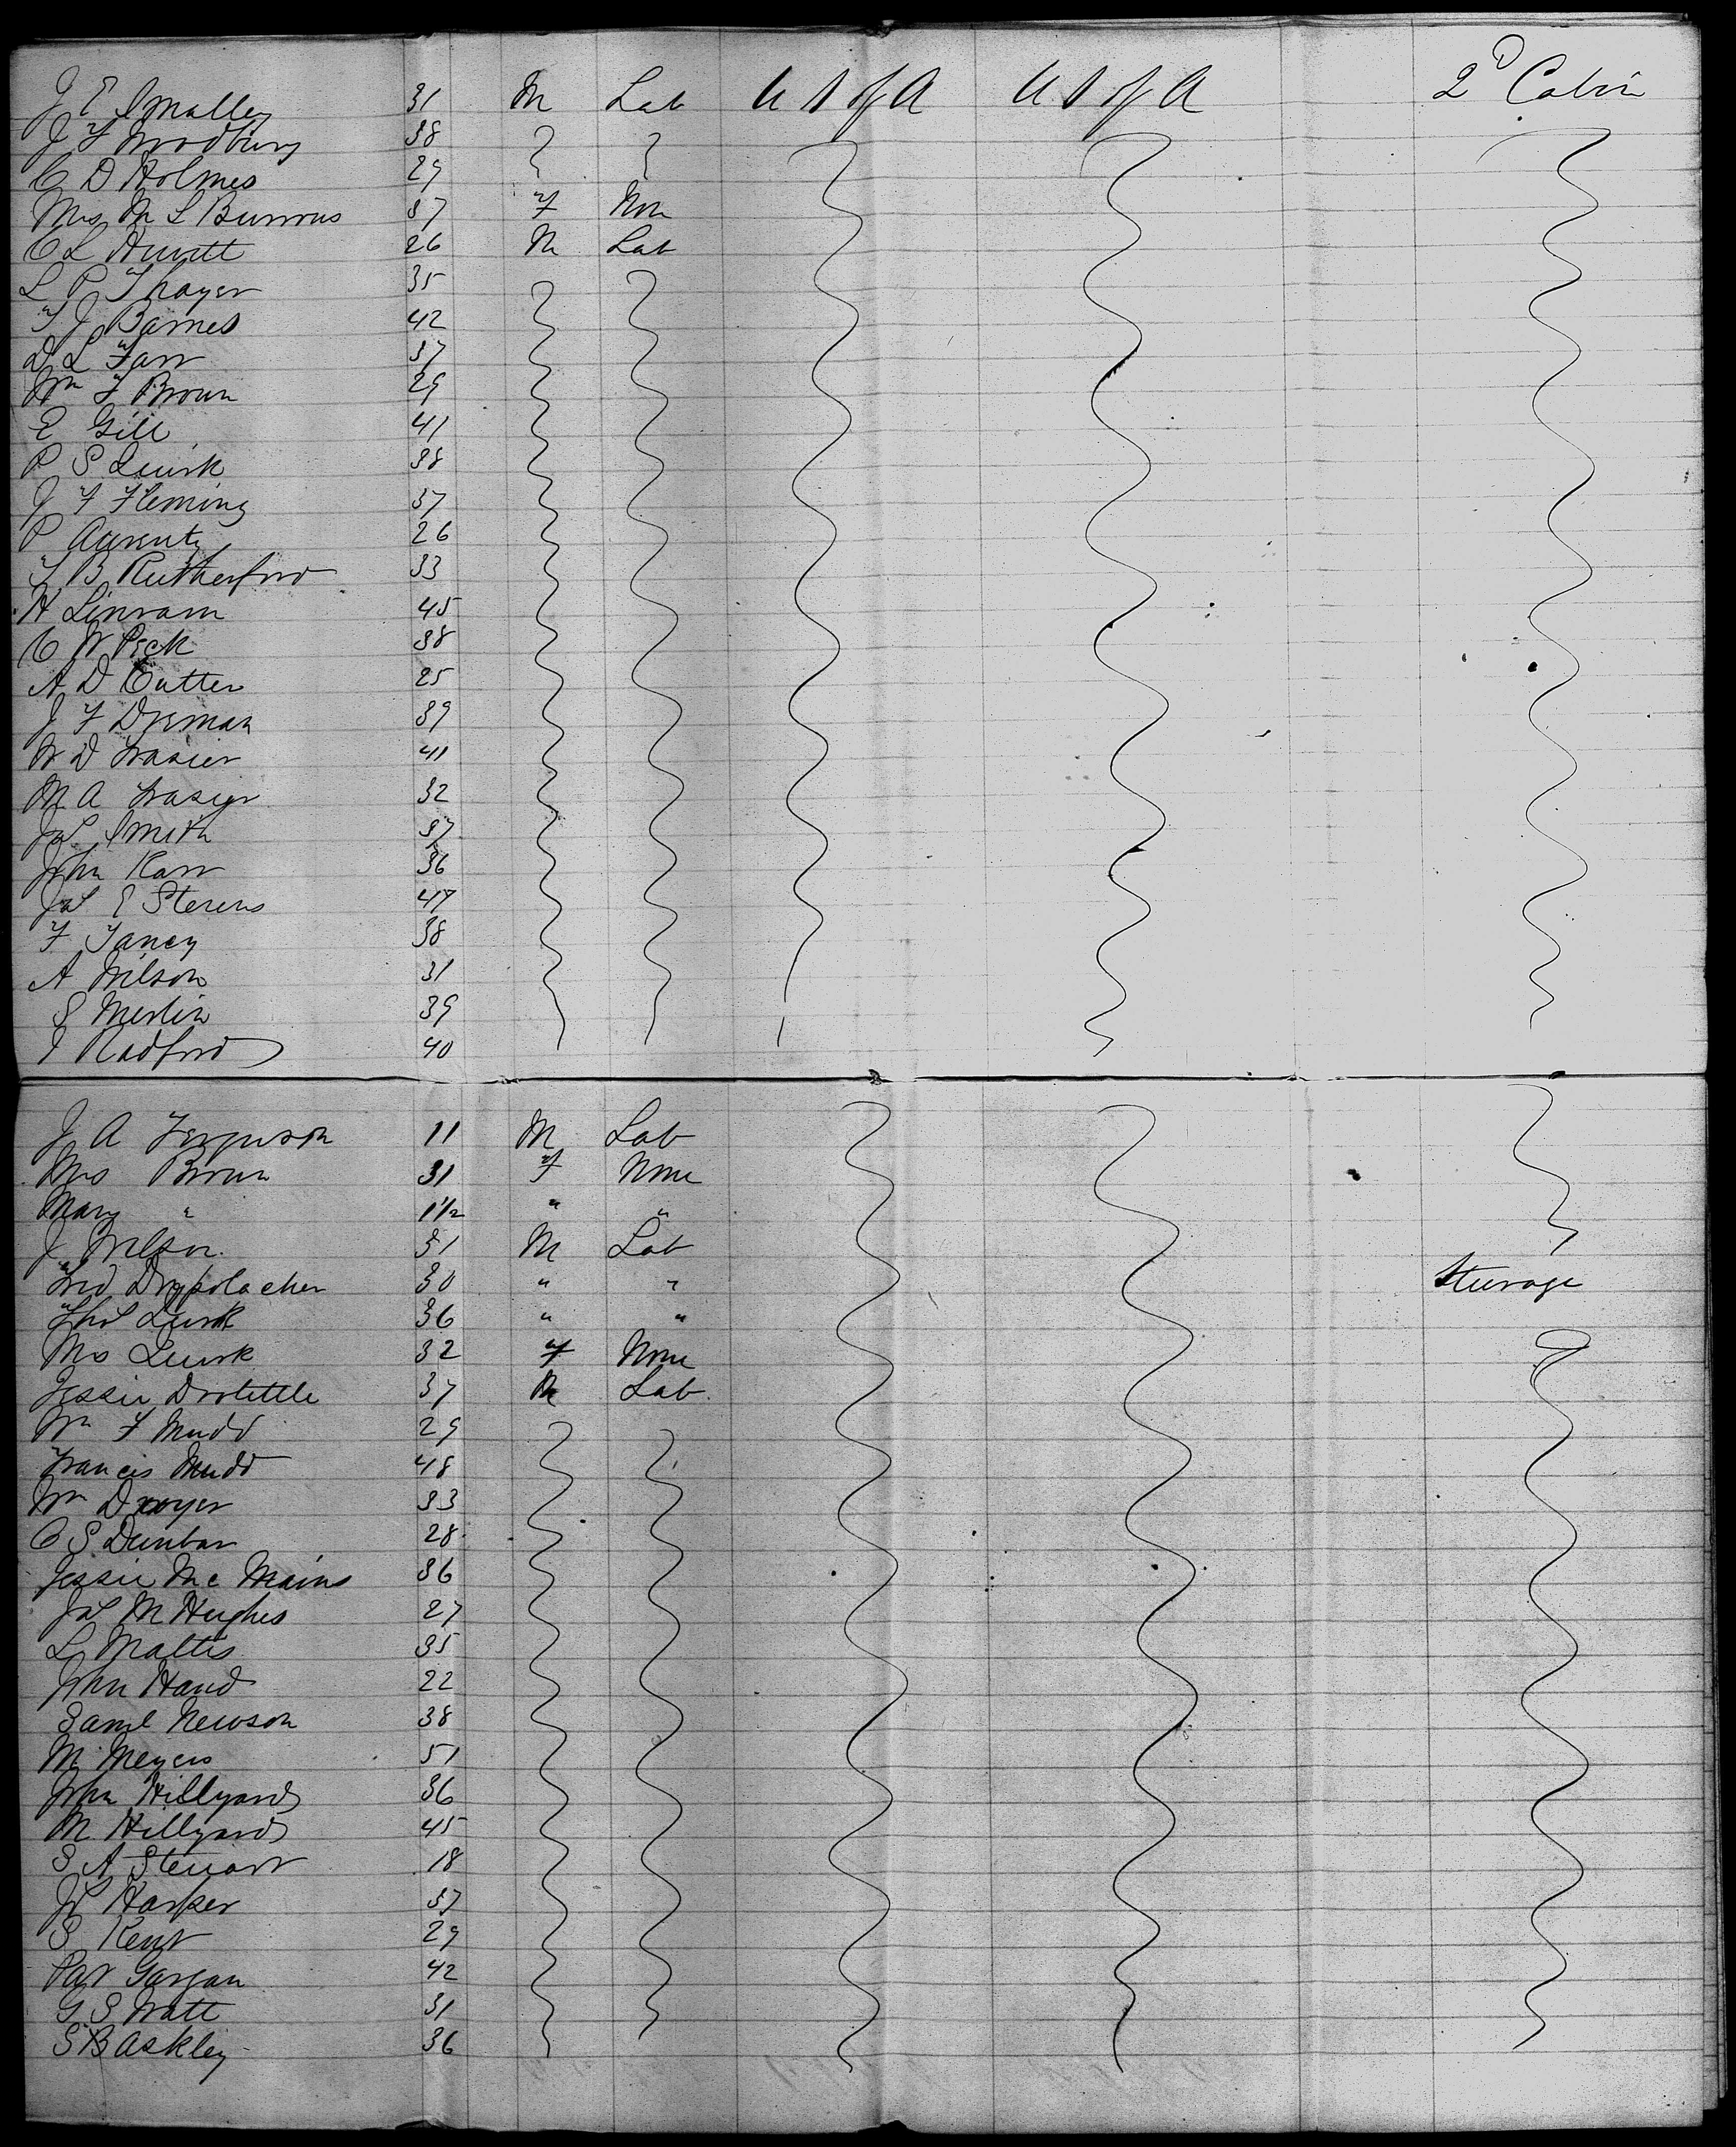 J E Smalley 31 M Lab U S of A U S of A 2D Cabin
J F Woodbury 38
C D Holmes 29
Mrs M L Burrows 37 F Non
C L Hewitt 26 M Lab
L P Thayer 35
T J Barnes 42
D L Farr 37
Wm F Brown 29
E Gill 41
P S Quirk 38
J F Fleming 37
P 26
T B Rutherford 33
H 45
C W Peck 38
A D Cutter 25
J F 39
W D Frasier 41
M A Frasier 32
Jas Smith 37
John Karr 36
Jas E Stevens 47
F Yancy 38
A Wilson 31
S Merlin 39
I Radford 40
J A Ferguson 11 M Lab
Mrs Brown 31 F None
Mary " 1 1/2 " "
J Wilson 31 M Lab
Fred 30 " " Steerage
Thos Quirk 36 " "
Mrs Quirk 32 F None
Jessie Doolittle 37 M Lab
Wm F Mudd 29
Francis Mudd 48
Wm Dwyer 33
C S Dunbar 28
Jessie Mc Mains 36
Jas M Hughes 27
L Mattis 35
John Hand 22
Saml Newson 38
M Meyers 51
John Hillyard 36
M Hillyard 45
S A Stewart 18
Jas Harper 37
S Kent 29
Pat Gargan 42
G S Watt 31
S B Askley 36